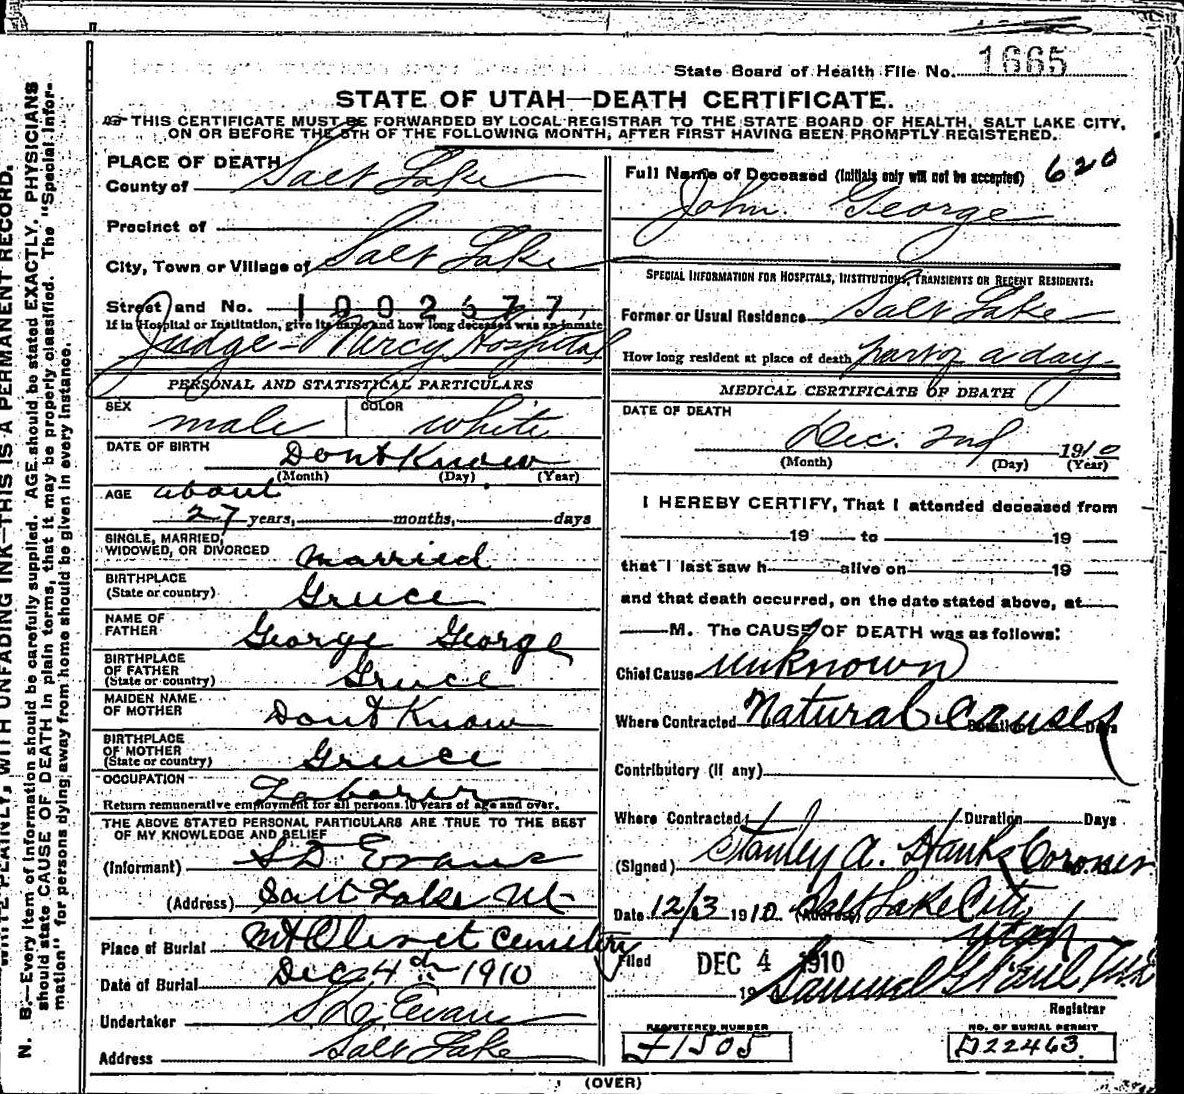 State Board of Health File No. 1665
STATE OF UTAH—DEATH CERTIFICATE.
THIS CERTIFICATE MUST BE FORWARDED BY LOCAL REGISTRAR TO THE STATE BOARD OF HEALTH, SALT LAKE CITY,
ON OR BEFORE THE 5TH OF THE FOLLOWING MONTH, AFTER FIRST HAVING BEEN PROMPTLY REGISTERED.
PLACE OF DEATH
County of Salt Lake
Precinct of
City, Town or Village of Salt Lake
Street and No. 1002577
If in Hospital or Institution, give its name and how long deceased was an inmate
Judge-Mercy Hospital
PERSONAL AND STATISTICAL PARTICULARS
SEX male COLOR white
DATE OF BIRTH Dont Know
(Month) (Day) (Year)
AGE about
27 years, months, days
SINGLE, MARRIED,
WIDOWED, OR DIVORCED married
BIRTHPLACE
(State or country) Gruce
NAME OF
FATHER George George
BIRTHPLACE
OF FATHER
(State or country) Gruce
MAIDEN NAME
OF MOTHER Dont Know
BIRTHPLACE
OF MOTHER
(State or country) Gruce
OCCUPATION Laborer
Return remunerative employment for all persons 10 years of age and over.
THE ABOVE STATED PERSONAL PARTICULARS ARE TRUE TO THE BEST
OF MY KNOWLEDGE AND BELIEF
(Informant) S D Evans
(Address) Salt Lake Ut
Place of Burial Mt Olivet Cemetery
Date of Burial Dec 4th 1910
Undertaker S.D. Evans
Address Salt Lake
Full Name of Deceased (Initials only will not be accepted) 620
John George
SPECIAL INFORMATION FOR HOSPITALS, INSTITUTIONS, TRANSIENTS OR RECENT RESIDENTS:
Former or Usual Residence Salt Lake
How long resident at place of death part of a day.
MEDICAL CERTIFICATE OF DEATH
DATE OF DEATH
Dec. 2nd 1910
(Month) (Day) (Year)
I HEREBY CERTIFY, That I attended deceased from
19 to 19
that I last saw h alive on 19
and that death occurred, on the date stated above, at
M. The CAUSE OF DEATH was as follows:
Chief Cause unknown
Where Contracted Natural Causes Duration Days
Contributory (if any)
Where Contracted Duration Days
(Signed) Stanley A. Hanks Coroner
Date 12/3 1910 (Address) Salt Lake City
Utah
Filed DEC 4 1910
19 Samuel G. M.D.
Registrar
REGISTERED NUMBER
F1505
NO. OF BURIAL PERMIT
D22463.
(OVER)
WRITE PLAINLY, WITH UNFADING INK—THIS IS A PERMANENT RECORD.
N. B.—Every item of information should be carefully supplied. AGE should be stated EXACTLY. PHYSICIANS
should state CAUSE OF DEATH in plain terms, that it may be properly classified. The "Special Infor-
mation" for persons dying away from home should be given in every instance.